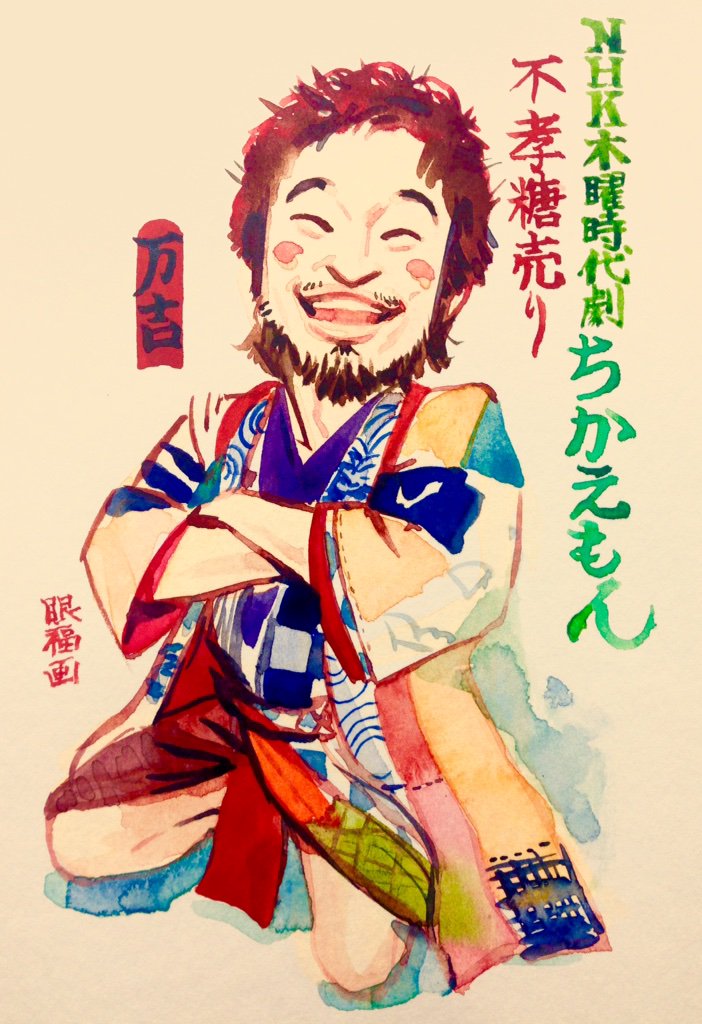 NHK木曜時代劇 ちかえもん
不孝糖売り
万吉
眼福画